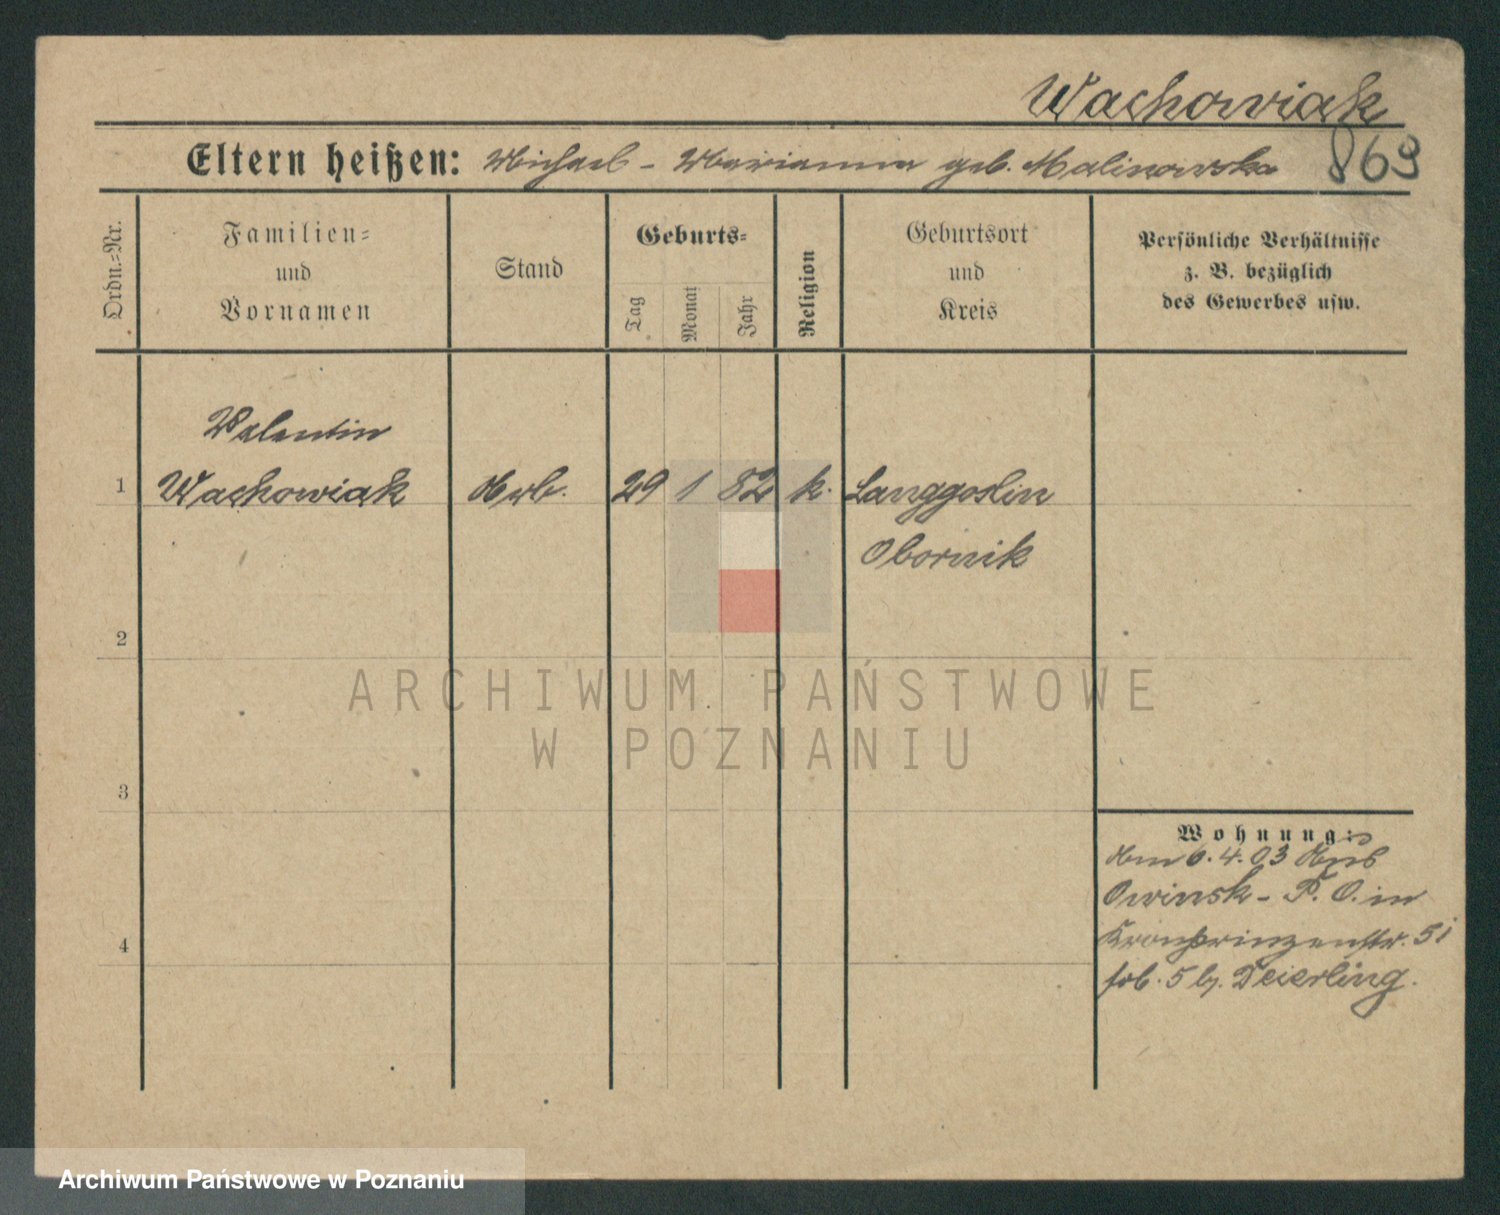 Wachowiak
Eltern heißen: Michael - Marianna geb. Malinowska
869
Ordn.=Nr.
Familien=
und
Vornamen
Stand
Geburts=
Tag
Monat
Jahr
Religion
Geburtsort
und
Kreis
Persönliche Verhältnisse
z. B. bezüglich
des Gewerbes usw.
Valentin
1 Wachowiak Arb. 29 1 82 k. Langgoslin
Obornik
2
ARCHIWUM PAŃSTWOWE
W POZNANIU
3
Wohnung:
Am 6.4.03 aus
Owinsk - P. O. in
4 Kronprinzenstr. 51
b. Deierling.
Archiwum Państwowe w Poznaniu